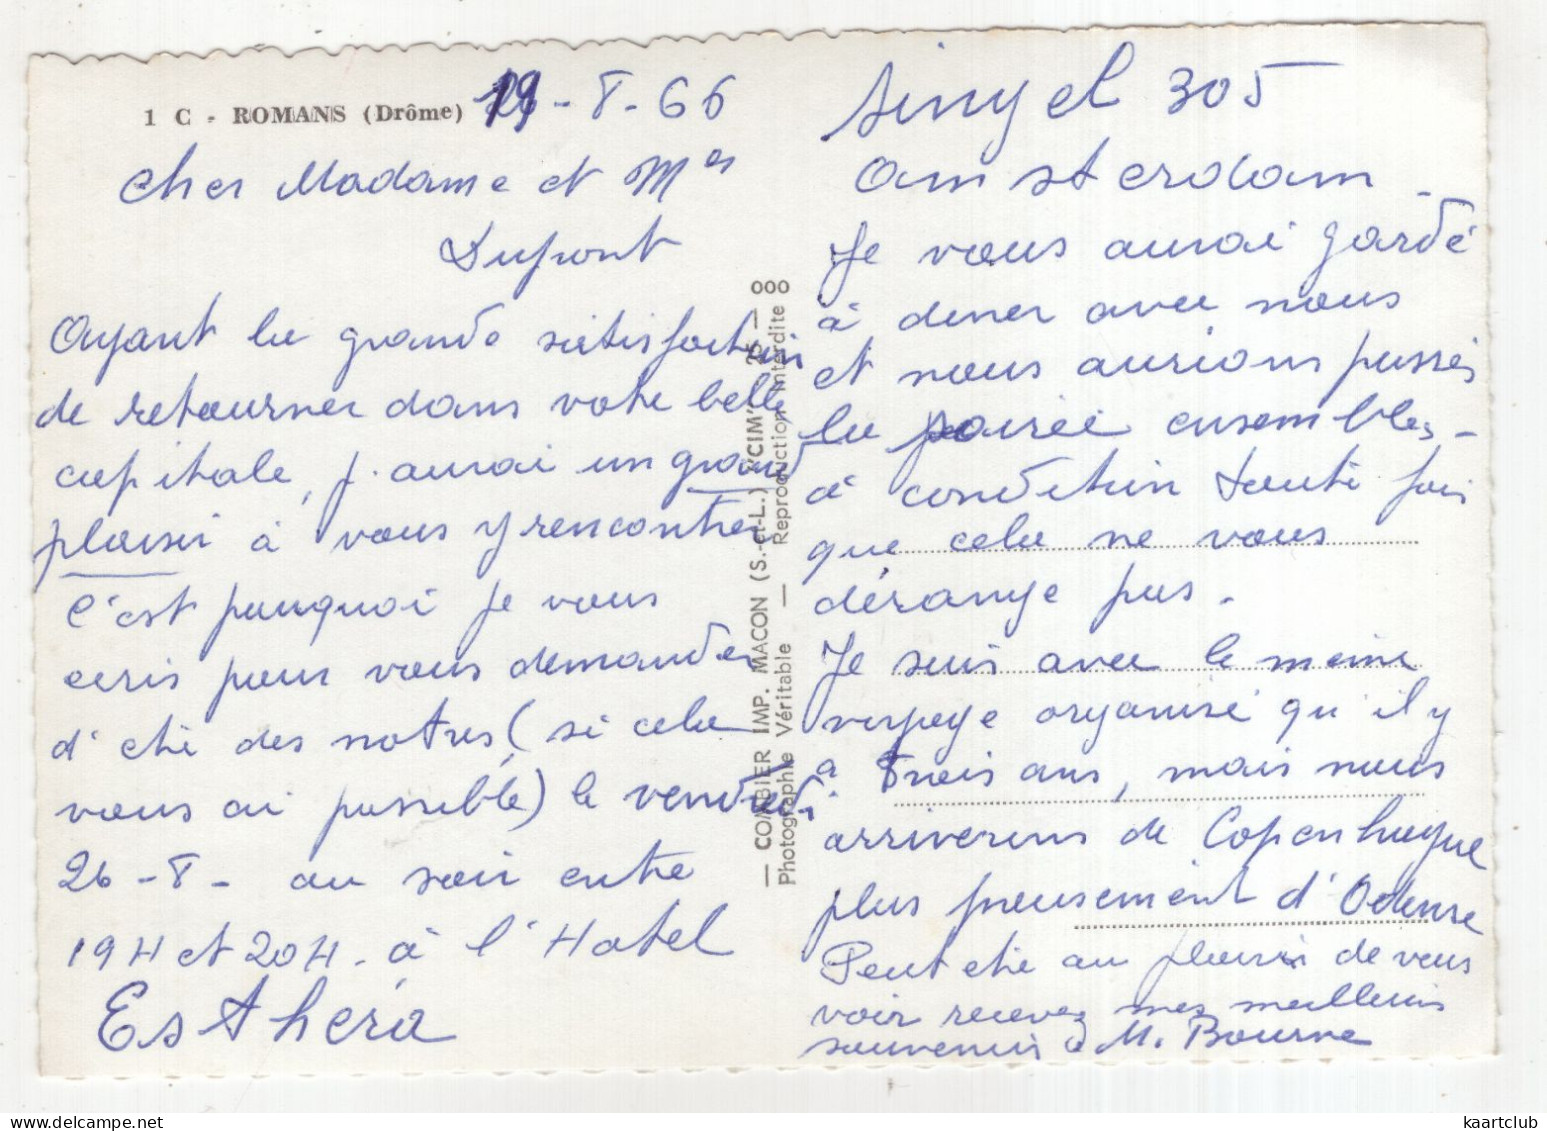 1 C - ROMANS (Drôme) 19-8-66
Cher Madame et Mer
Dupont
Ayant la grande satisfaction
de retourner dans votre belle
capitale, j'aurai un grand
plaisir à vous y rencontrer
C'est pourquoi je vous
ecris pour vous demander
d'etre des notres, (si cela
vous ai possible) le vendredi
26-8- au soir entre
19H et 20H. à l'Hotel
Esthéra
Singel 305
Amsterdam -
Je vous aurai gardé
à diner avec nous
et nous aurions passés
la soirée ensembles -
à condition toute fois
que cela ne vous
dérange pas.
Je suis avec le meme
voyage organisé qu'il y
a trois ans, mais nous
arriverons de Copenhague
plus preusement d'Odense
Peut etre au plaisir de vous
voir recevez mes meilleurs
souvenirs M. Bourne
— COMBIER IMP. MACON (S.-et-L.) "CIM" 25 — 000
Photographie Véritable — Reproduction interdite
www.delcampe.net
kaartclub